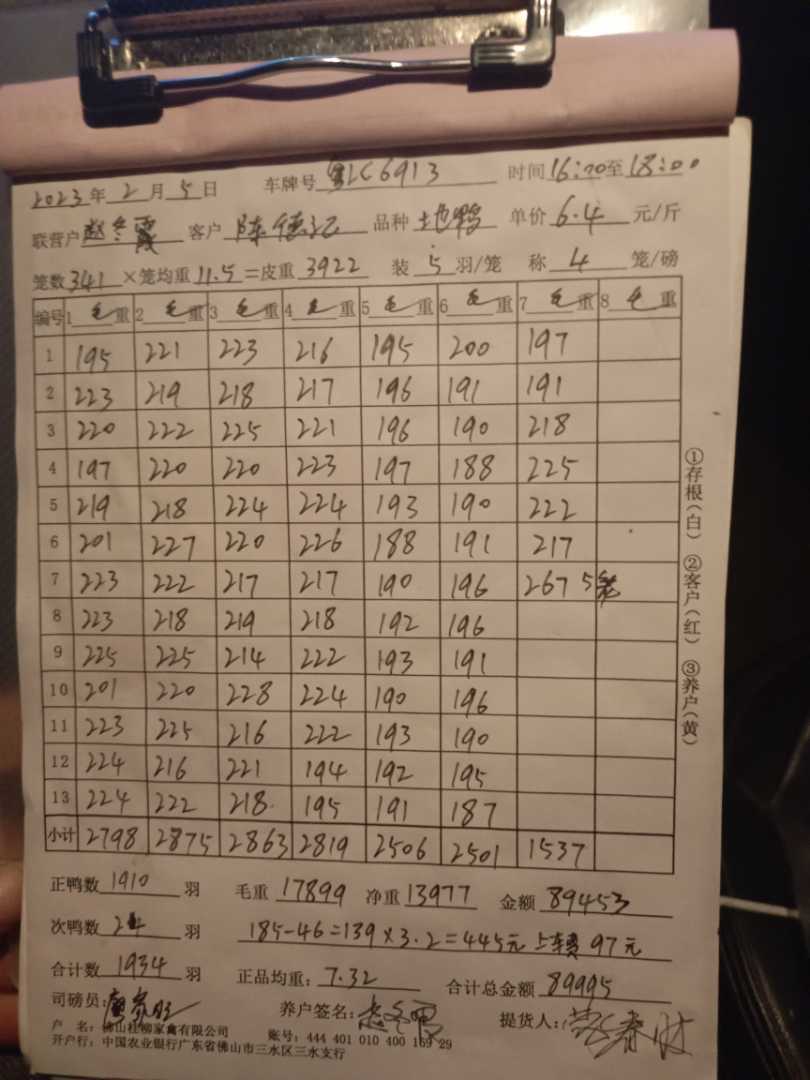 2023年2月5日 车牌号 粤LC6913 时间16:00至18:00
联营户 赵冬霞 客户 陈德记 品种 土地鸭 单价 6.4 元/斤
笼数 341 ×笼均重 11.5 =皮重 3922 装 5 羽/笼 称 4 笼/磅
编号 1 毛重 2 毛重 3 毛重 4 毛重 5 毛重 6 毛重 7 毛重 8 毛重
1 195 221 223 216 195 200 197
2 223 219 218 217 196 191 191
3 220 222 225 221 196 190 218
4 197 220 220 223 197 188 225
5 219 218 224 224 193 190 222
6 201 227 220 226 188 191 217
7 223 222 217 217 190 196 267 5笼
8 223 218 219 218 192 196
9 225 225 214 222 193 191
10 201 220 228 224 190 196
11 223 225 216 222 193 190
12 224 216 221 194 192 195
13 224 222 218 195 191 187
小计 2798 2875 2863 2819 2506 2501 1537
①存根(白) ②客户(红) ③养户(黄)
正鸭数 1910 羽 毛重 17899 净重 13977 金额 89453
次鸭数 24 羽 185-46=139×3.2=445元 上车费 97元
合计数 1934 羽 正品均重: 7.32 合计总金额 89995
司磅员: 养户签名: 赵冬霞 提货人:
户 名: 佛山桂柳家禽有限公司 账号: 444 401 010 400 169 29
开户行: 中国农业银行广东省佛山市三水区三水支行